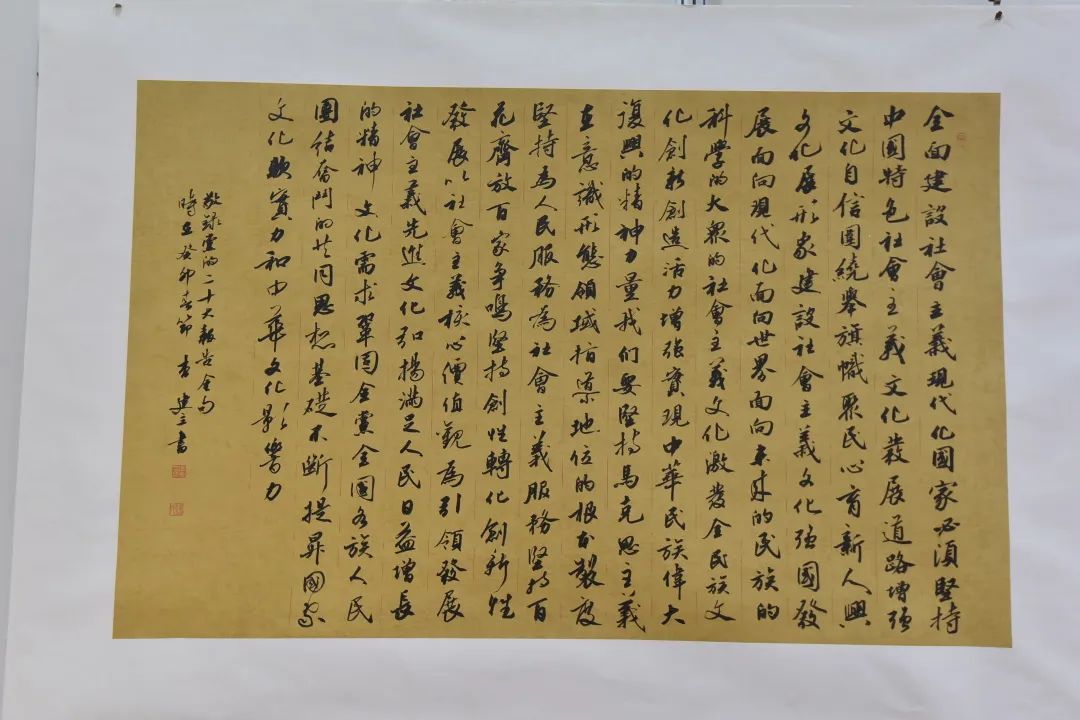 全面建設社會主義現代化國家必須堅持
中國特色社會主義文化發展道路增強
文化自信圍繞舉旗幟聚民心育新人興
文化展形象建設社會主義文化強國發
展面向現代化面向世界面向未來的民族的
科學的大眾的社會主義文化激發全民族文
化創新創造活力增強實現中華民族偉大
復興的精神力量我们要堅持馬克思主義
在意識形態領域指導地位的根本制度
堅持為人民服務為社會主義服務堅持百
花齊放百家爭鳴堅持創性轉化創新性
發展以社會主義核心價值觀為引領發展
社會主義先進文化弘揚滿足人民日益增長
的精神文化需求鞏固全黨全國各族人民
團結奮鬥的共同思想基礎不斷提昇國家
文化軟實力和中華文化影響力
敬録黨的二十大報告金句
時在癸卯春節 李建立書